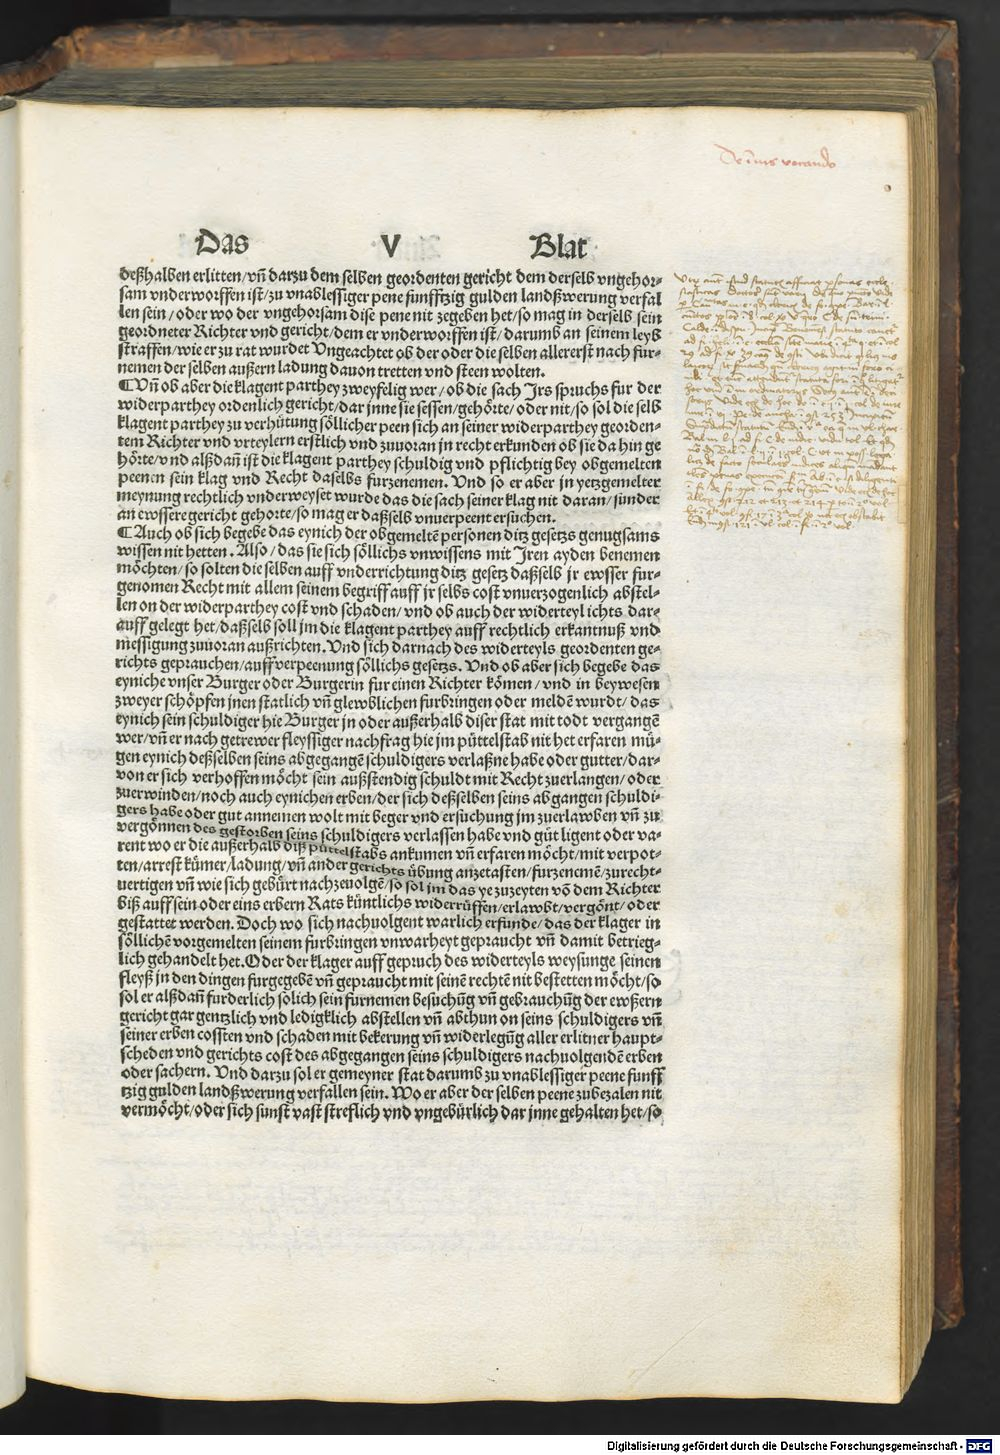 De inius vocando
Das V Blat
deßhalben erlitten/vñ darzu dem selben geordenten gericht dem derselb vngehor-
sam vnderworffen ist/zu vnablessiger pene funfftzig gulden landßwerung verfal
len sein/oder wo der vngehorsam dise pene nit zegeben het/so mag in derselb sein
geordneter Richter vnd gericht/dem er vnderworffen ist/darumb an seinem leyb
straffen/wie er zu rat wurdet Vngeachtet ob der oder die selben allererst nach fur-
nemen der selben außern ladung dauon tretten vnd steen wolten.
¶ Vñ ob aber die klagent parthey zweyfelig wer/ob die sach Jrs spruchs fur der
widerparthey ordenlich gericht/dar jnne sie sessen/gehörte/oder nit/so sol die selb
klagent parthey zu verhütung söllicher peen sich an seiner widerparthey georden-
tem Richter vnd vrteylern erstlich vnd zuuoran in recht erkunden ob sie da hin ge
hörte/vnd alßdañ ist die klagent parthey schuldig vnd pflichtig bey obgemelten
peenen sein klag vnd Recht daselbs furzenemen. Vnd so er aber in yetzgemelter
meynung rechtlich vnderweyset wurde das die sach seiner klag nit daran/sunder
an ewssere gericht gehorte/so mag er daßselb vnuerpeent ersuchen.
¶ Auch ob sich begebe das eynich der obgemeltē personen ditz gesetzs genugsams
wissen nit hetten. Also/das sie sich söllichs vnwissens mit Jren ayden benemen
möchten/so solten die selben auff vnderrichtung ditz gesetz daßselb jr ewsser fur-
genomen Recht mit allem seinem begriff auff jr selbs cost vnuerzogenlich abstel-
len on der widerparthey cost vnd schaden/vnd ob auch der widerteyl ichts dar-
auff gelegt het/daßselb soll jm die klagent parthey auff rechtlich erkantnuß vnd
messigung zuuoran außrichten. Vnd sich darnach des widerteyls geordenten ge-
richts geprauchen/auff verpeenung söllichs gesetzs. Vnd ob aber sich begebe das
eyniche vnser Burger oder Burgerin fur einen Richter kömen/vnd in beywesen
zweyer schöpfen jnen statlich vñ glewblichen furbringen oder meldē wurdt/das
eynich sein schuldiger hie Burger jn oder außerhalb diser stat mit todt vergangē
wer/vñ er nach getrewer fleyssiger nachfrag hie jm püttelstab nit het erfaren mü-
gen eynich deßselben seins abgegangē schuldigers verlaßne habe oder gutter/dar-
von er sich verhoffen möcht sein außstendig schuldt mit Recht zuerlangen/oder
zuerwinden/noch auch eynichen erben/der sich deßselben seins abgangen schuldi-
gers habe oder gut annemen wolt mit beger vnd ersuchung jm zuerlawben vñ zu
vergönnen des gestorben seins schuldigers verlassen habe vnd güt ligent oder va-
rent wo er die außerhalb diß püttelstabs ankumen vñ erfaren möcht/mit verpot-
ten/arrest kümer/ladung/vñ ander gerichts übung anzetasten/furzenemē/zurecht-
uertigen vñ wie sich gebürt nachzeuolgē/so sol jm das ye zuzeyten vō dem Richter
biß auff sein oder eins erbern Rats küntlichs widerrüffen/erlawbt/vergönt/oder
gestattet werden. Doch wo sich nachuolgent warlich erfunde/das der klager in
söllichē vorgemelten seinem furbringen vnwarheyt gepraucht vñ damit betrieg-
lich gehandelt het. Oder der klager auff gepruch des widerteyls weysunge seinen
fleyß jn den dingen furgegebē vñ gepraucht mit seinē rechtē nit bestetten möcht/so
sol er alßdañ furderlich solich sein furnemen besuchūg vñ gebrauchūg der ewßern
gericht gar gentzlich vnd ledigklich abstellen vñ abthun on seins schuldigers vñ
seiner erben cossten vnd schaden mit bekerung vñ widerlegūg aller erlitner haupt-
scheden vnd gerichts cost des abgegangen seins schuldigers nachuolgendē erben
oder sachern. Vnd darzu sol er gemeyner stat darumb zu vnablessiger peene funff
tzig gulden landßwerung verfallen sein. Wo er aber der selben peene zubezalen nit
vermöcht/oder sich sunst vast streflich vnd vngebürlich dar jnne gehalten het/so
Digitalisierung gefördert durch die Deutsche Forschungsgemeinschaft - DFG